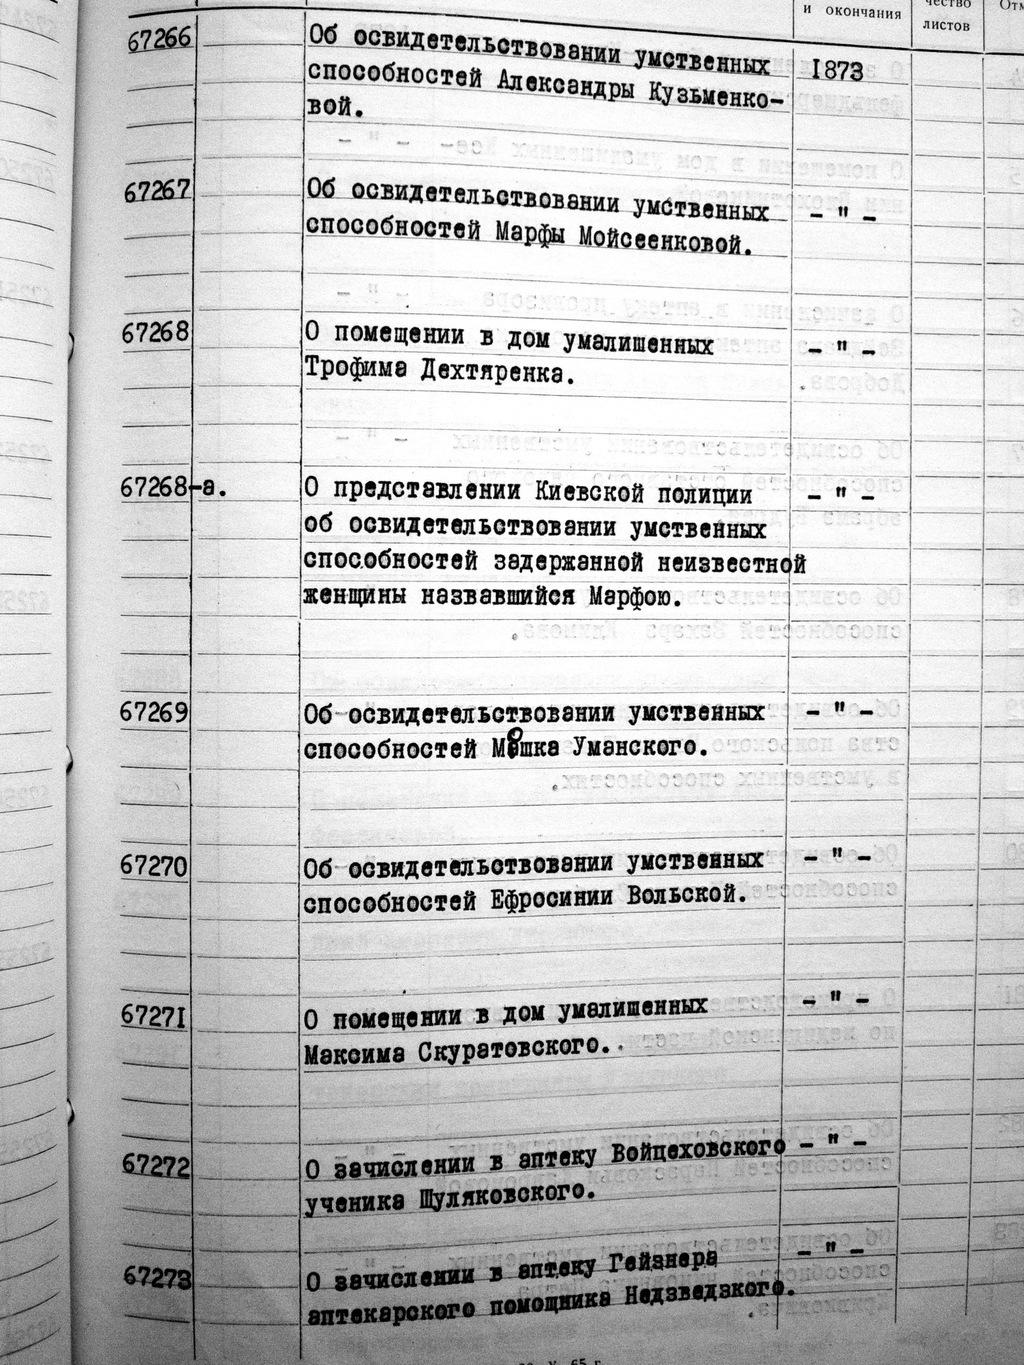 и окончания
чество
листов
67266 Об освидетельствовании умственных 1873
способностей Александры Кузьменко-
вой.
67267 Об освидетельствовании умственных - " -
способностей Марфы Мойсеенковой.
67268 О помещении в дом умалишенных - " -
Трофима Дехтяренка.
67268-а. О представлении Киевской полиции - " -
об освидетельствовании умственных
способностей задержанной неизвестной
женщины назвавшийся Марфою.
67269 Об освидетельствовании умственных - " -
способностей Мошка Уманского.
67270 Об освидетельствовании умственных - " -
способностей Ефросинии Вольской.
67271 О помещении в дом умалишенных - " -
Максима Скуратовского.
67272 О зачислении в аптеку Войцеховского - " -
ученика Шуляковского.
67273 О зачислении в аптеку Гейзнера - " -
аптекарского помощника Недзведзкого.